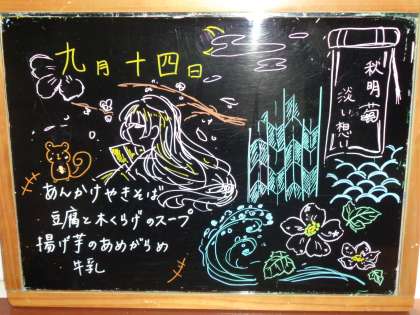 九月十四日
秋明菊
淡い想い
あんかけやきそば
豆腐と木くらげのスープ
揚げ芋のあめがらめ
牛乳